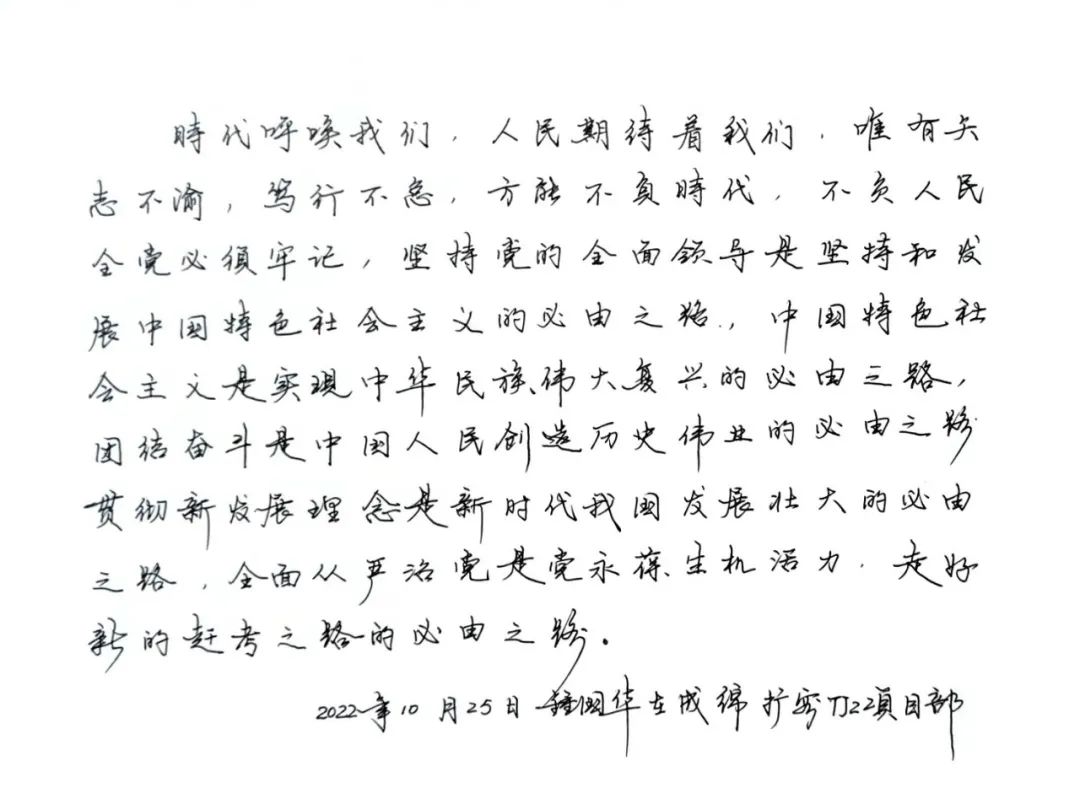 時代呼唤我们，人民期待着我们，唯有矢
志不渝，笃行不怠，方能不负時代，不负人民
全党必须牢记，坚持党的全面领导是坚持和发
展中国特色社会主义的必由之路，中国特色社
会主义是实現中华民族伟大复兴的必由之路，
团结奋斗是中国人民创造历史伟业的必由之路
贯彻新发展理念是新时代我国发展壮大的必由
之路，全面从严治党是党永葆生机活力，走好
新的赶考之路的必由之路。
2022年10月25日 鍾国华在成绵扩容TJ22项目部